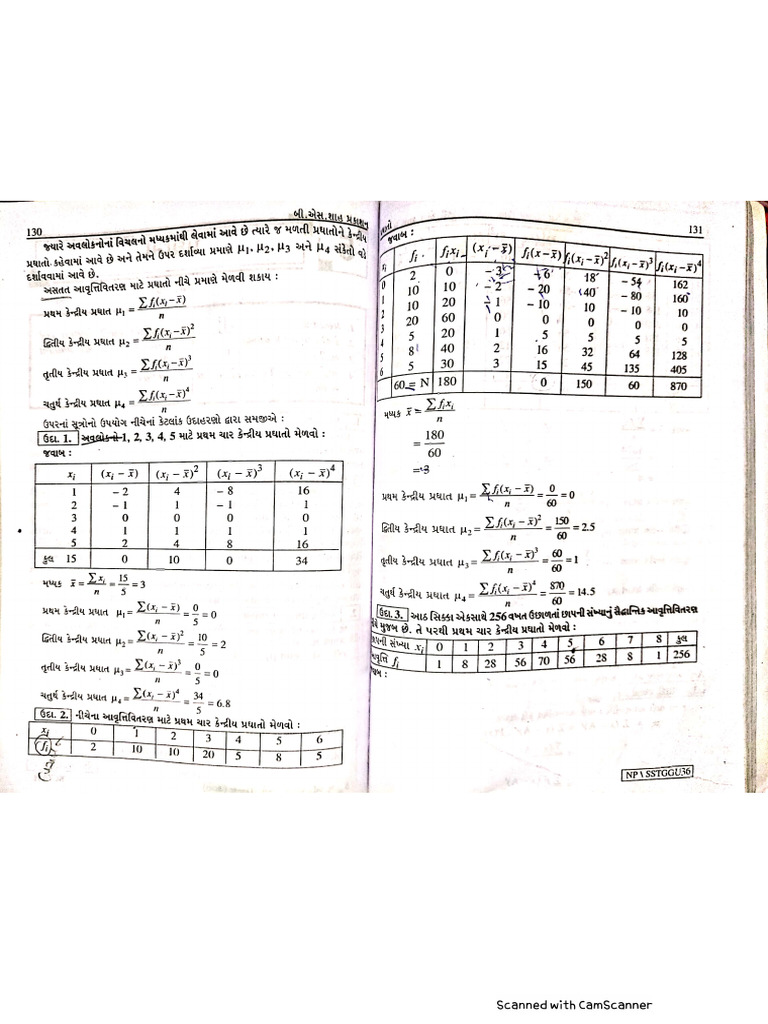 બી.એસ.શાહ પ્રકાશન
130
જ્યારે અવલોકનોનાં વિચલનો મધ્યકમાંથી લેવામાં આવે છે ત્યારે જ મળતી પ્રઘાતોને કેન્દ્રીય
પ્રઘાતો કહેવામાં આવે છે અને તેમને ઉપર દર્શાવ્યા પ્રમાણે μ₁, μ₂, μ₃ અને μ₄ સંકેતો વડે
દર્શાવવામાં આવે છે.
અસતત આવૃત્તિવિતરણ માટે પ્રઘાતો નીચે પ્રમાણે મેળવી શકાય :
પ્રથમ કેન્દ્રીય પ્રઘાત μ₁ = ∑fᵢ(xᵢ−x̄)/n
દ્વિતીય કેન્દ્રીય પ્રઘાત μ₂ = ∑fᵢ(xᵢ−x̄)²/n
તૃતીય કેન્દ્રીય પ્રઘાત μ₃ = ∑fᵢ(xᵢ−x̄)³/n
ચતુર્થ કેન્દ્રીય પ્રઘાત μ₄ = ∑fᵢ(xᵢ−x̄)⁴/n
ઉપરનાં સૂત્રોનો ઉપયોગ નીચેનાં કેટલાંક ઉદાહરણો દ્વારા સમજીએ :
ઉદા. 1. અવલોકનો 1, 2, 3, 4, 5 માટે પ્રથમ ચાર કેન્દ્રીય પ્રઘાતો મેળવો :
જવાબ :
xᵢ (xᵢ − x̄) (xᵢ − x̄)² (xᵢ − x̄)³ (xᵢ − x̄)⁴
1 − 2 4 − 8 16
2 − 1 1 − 1 1
3 0 0 0 0
4 1 1 1 1
5 2 4 8 16
કુલ 15 0 10 0 34
મધ્યક x̄ = ∑xᵢ/n = 15/5 = 3
પ્રથમ કેન્દ્રીય પ્રઘાત μ₁ = ∑(xᵢ − x̄)/n = 0/5 = 0
દ્વિતીય કેન્દ્રીય પ્રઘાત μ₂ = ∑(xᵢ − x̄)²/n = 10/5 = 2
તૃતીય કેન્દ્રીય પ્રઘાત μ₃ = ∑(xᵢ − x̄)³/n = 0/5 = 0
ચતુર્થ કેન્દ્રીય પ્રઘાત μ₄ = ∑(xᵢ − x̄)⁴/n = 34/5 = 6.8
ઉદા. 2. નીચેના આવૃત્તિવિતરણ માટે પ્રથમ ચાર કેન્દ્રીય પ્રઘાતો મેળવો :
xᵢ 0 1 2 3 4 5 6
fᵢ 2 10 10 20 5 8 5
131
જવાબ :
xᵢ fᵢ fᵢxᵢ (xᵢ − x̄) fᵢ(x − x̄) fᵢ(xᵢ − x̄)² fᵢ(xᵢ − x̄)³ fᵢ(xᵢ − x̄)⁴
0 2 0 − 3 − 6 18 − 54 162
1 10 10 − 2 − 20 40 − 80 160
2 10 20 − 1 − 10 10 − 10 10
3 20 60 0 0 0 0 0
4 5 20 1 5 5 5 5
5 8 40 2 16 32 64 128
6 5 30 3 15 45 135 405
60 = N 180 0 150 60 870
મધ્યક x̄ = ∑fᵢxᵢ/n
= 180/60
= 3
પ્રથમ કેન્દ્રીય પ્રઘાત μ₁ = ∑fᵢ(xᵢ − x̄)/n = 0/60 = 0
દ્વિતીય કેન્દ્રીય પ્રઘાત μ₂ = ∑fᵢ(xᵢ − x̄)²/n = 150/60 = 2.5
તૃતીય કેન્દ્રીય પ્રઘાત μ₃ = ∑fᵢ(xᵢ − x̄)³/n = 60/60 = 1
ચતુર્થ કેન્દ્રીય પ્રઘાત μ₄ = ∑fᵢ(xᵢ − x̄)⁴/n = 870/60 = 14.5
ઉદા. 3. આઠ સિક્કા એકસાથે 256 વખત ઉછાળતાં છાપની સંખ્યાનું સૈદ્ધાન્તિક આવૃત્તિવિતરણ
મુજબ છે. તે પરથી પ્રથમ ચાર કેન્દ્રીય પ્રઘાતો મેળવો :
સંખ્યા xᵢ 0 1 2 3 4 5 6 7 8 કુલ
fᵢ 1 8 28 56 70 56 28 8 1 256
NP \ SSTGGU36
Scanned with CamScanner